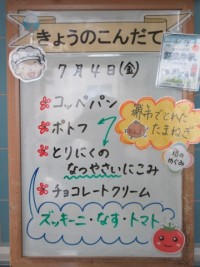 きょうのこんだて
7月4日(金)
コッペパン
ポトフ
とりにくの
なつやさいにこみ
チョコレートクリーム
ズッキーニ・なす・トマト
堺市でとれた
たまねぎ
畑の
めぐみ